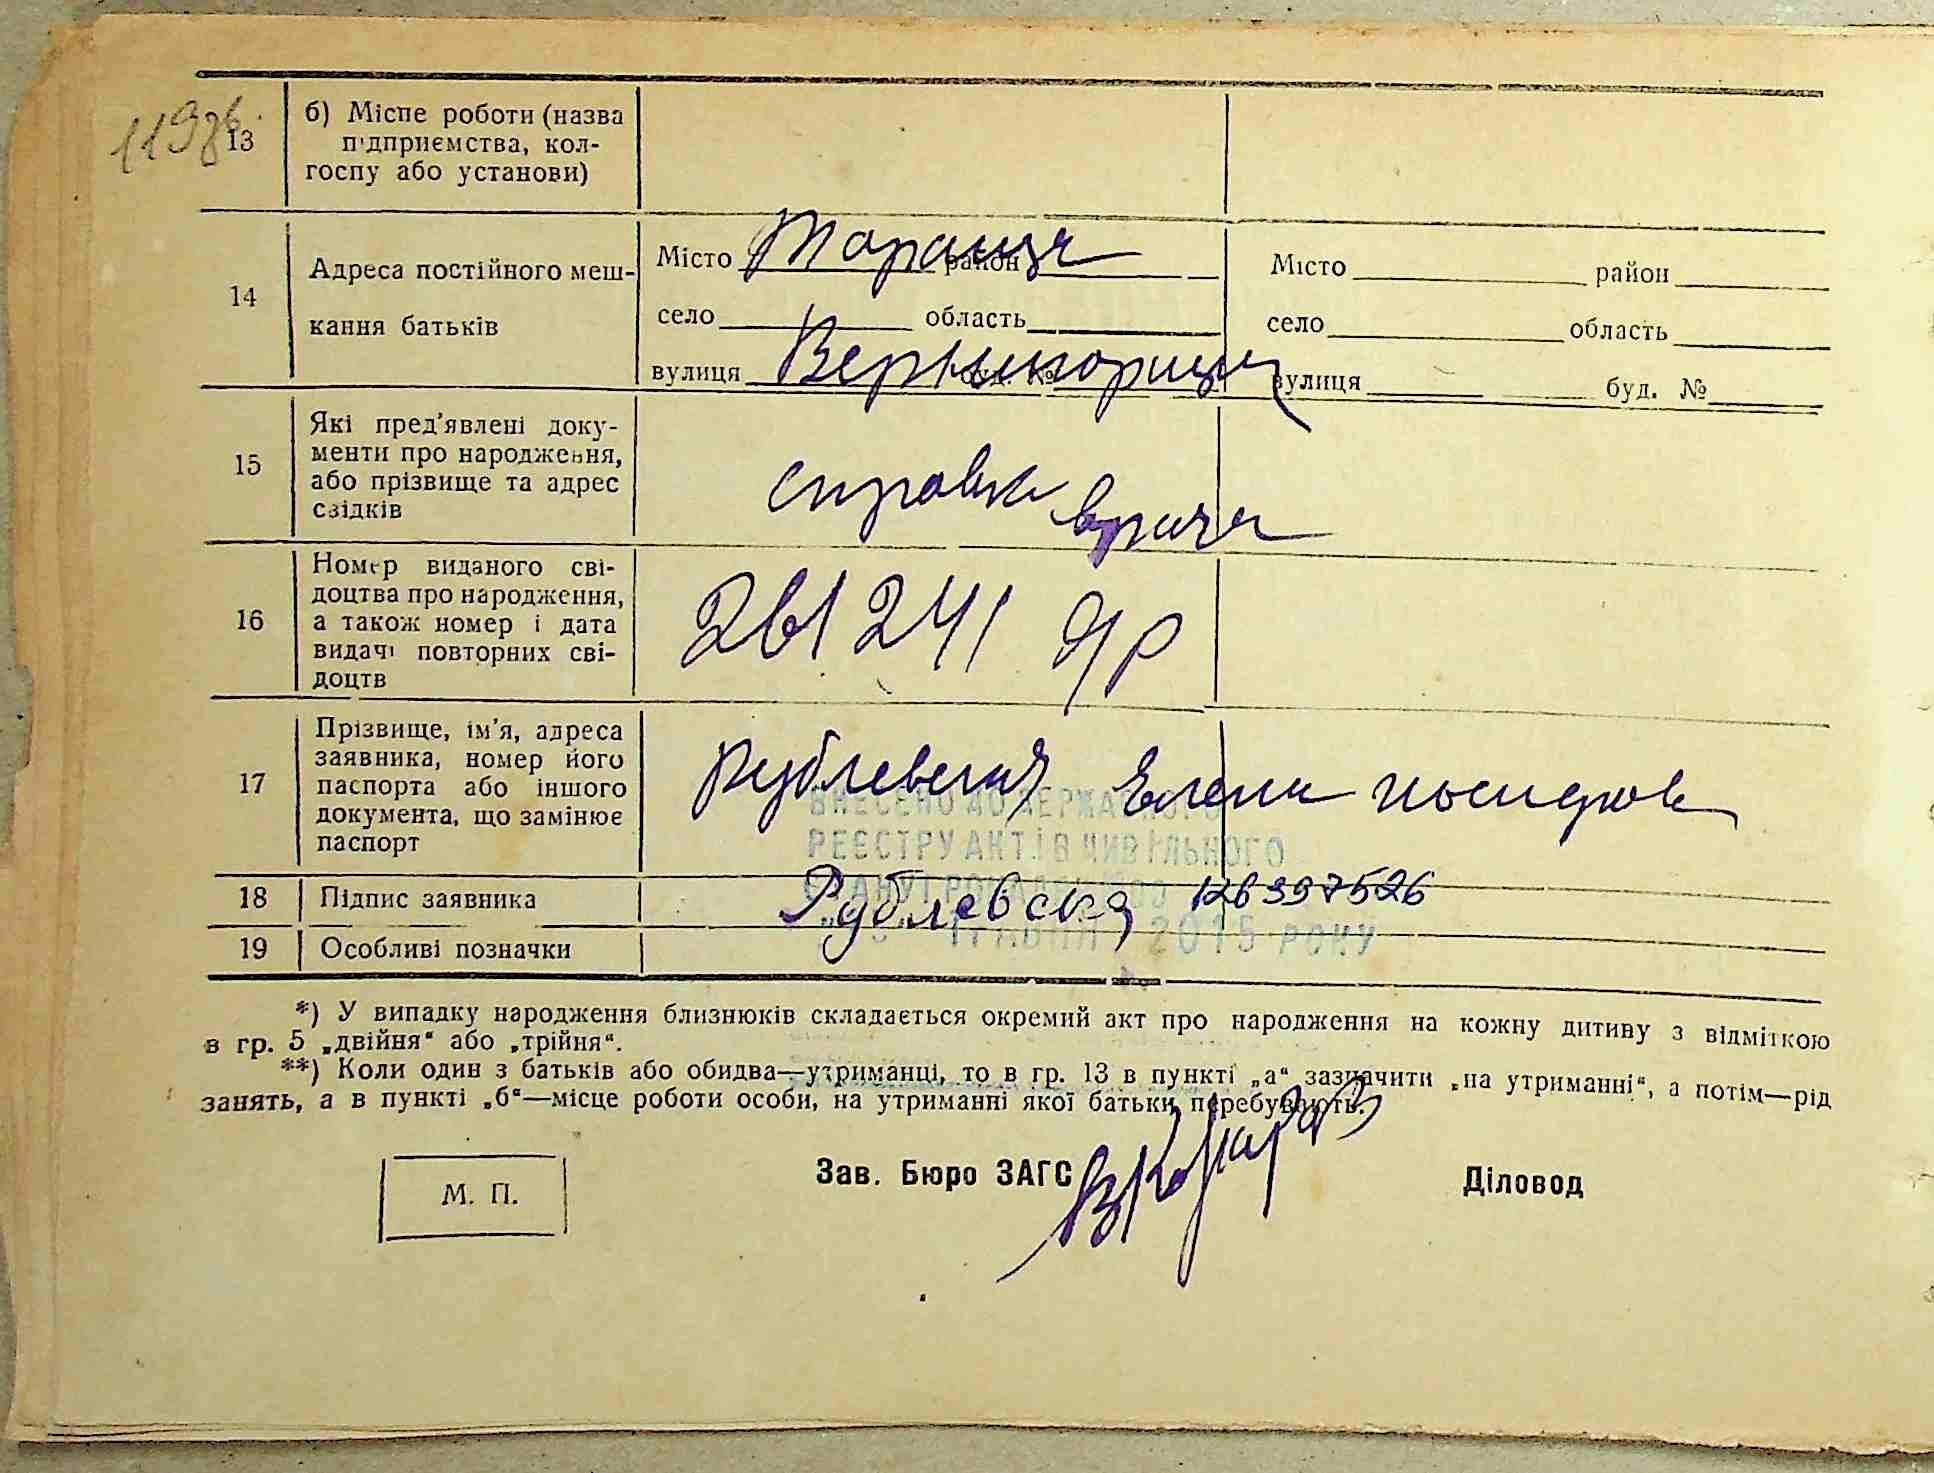 119 зв.
13 б) Місце роботи (назва
підприємства, кол-
госпу або установи)
14 Адреса постійного меш-
кання батьків
Місто Тараща район
село область
вулиця Вернигори буд. №
Місто район
село область
вулиця буд. №
15 Які пред'явлені доку-
менти про народження,
або прізвище та адрес
свідків
справка врача
16 Номер виданого сві-
доцтва про народження,
а також номер і дата
видачі повторних сві-
доцтв
261241
17 Прізвище, ім'я, адреса
заявника, номер його
паспорта або іншого
документа, що замінює
паспорт
Рублевская Елена
ВНЕСЕНО ДО ДЕРЖАВНОГО
РЕЄСТРУ АКТІВ ЦИВІЛЬНОГО
СТАНУ ГРОМАДЯН
ТРАВНЯ 2015 РОКУ
18 Підпис заявника Рублевска 126397526
19 Особливі позначки
*) У випадку народження близнюків складається окремий акт про народження на кожну дитину з відміткою
в гр. 5 „двійня“ або „трійня“.
**) Коли один з батьків або обидва—утриманці, то в гр. 13 в пункті „а“ зазначити „на утриманні“, а потім—рід
занять, а в пункті „б“—місце роботи особи, на утриманні якої батьки перебувають.
М. П. Зав. Бюро ЗАГС Діловод